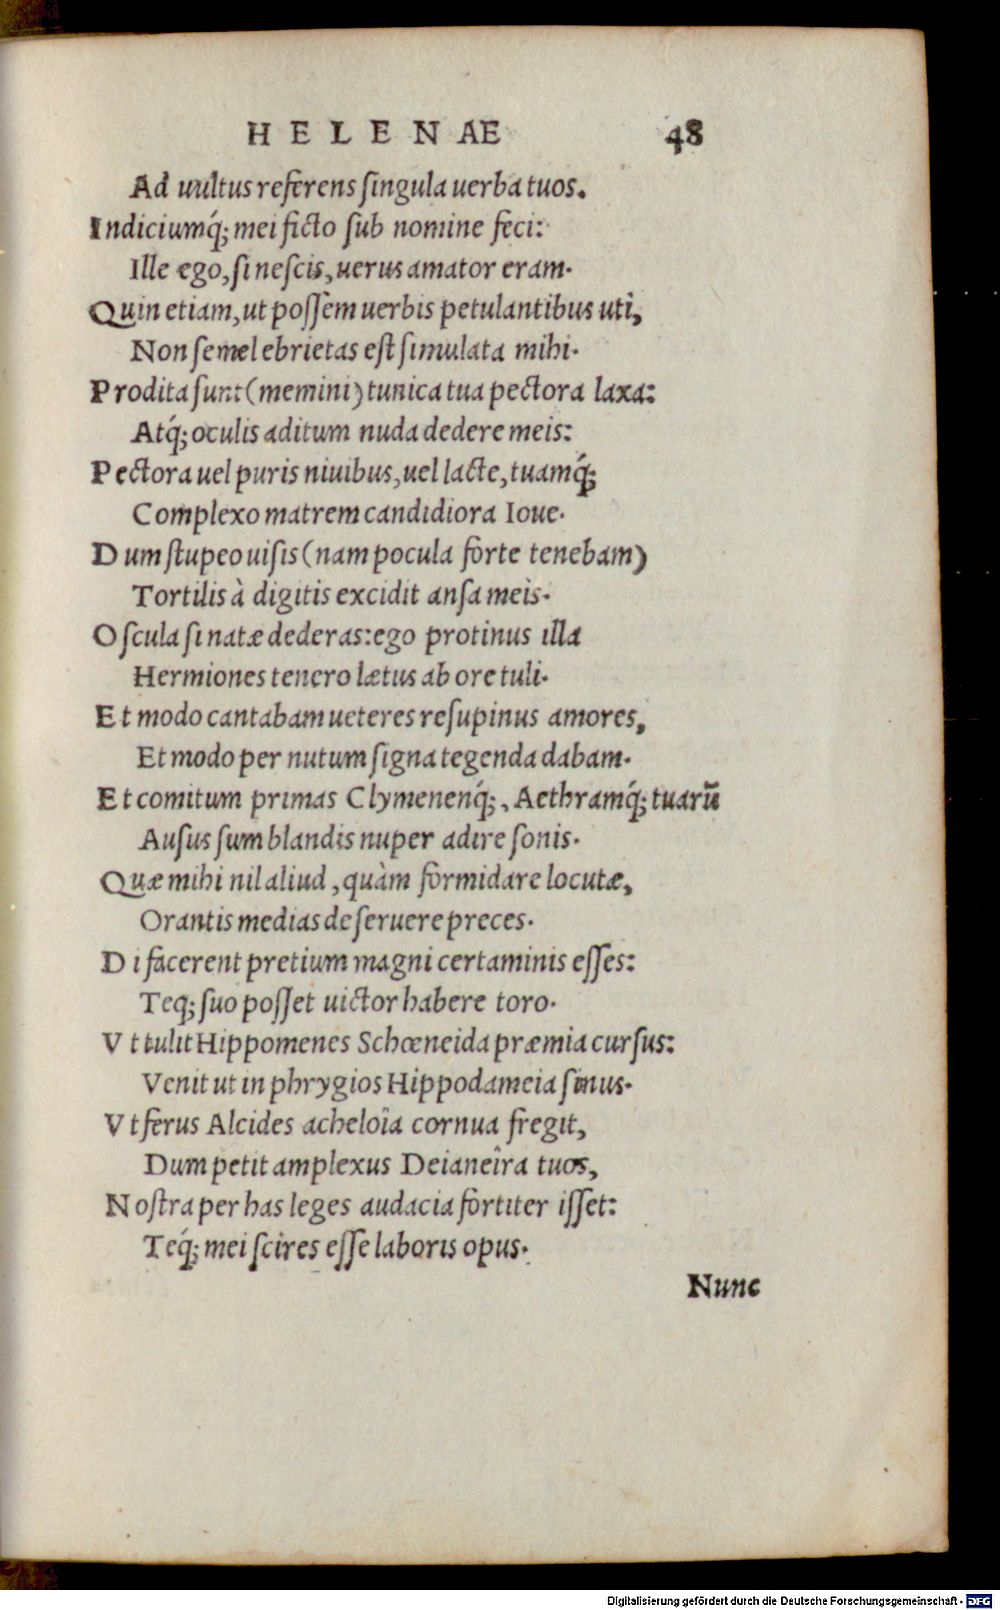 HELENAE 48
Ad uultus referens singula uerba tuos.
Indiciumq́; mei ficto sub nomine feci:
Ille ego, si nescis, uerus amator eram.
Quin etiam, ut possem uerbis petulantibus uti,
Non semel ebrietas est simulata mihi.
Prodita sunt (memini) tunica tua pectora laxa:
Atq́; oculis aditum nuda dedere meis:
Pectora uel puris niuibus, uel lacte, tuamq́;
Complexo matrem candidiora Ioue.
Dum stupeo uisis (nam pocula forte tenebam)
Tortilis à digitis excidit ansa meis.
Oscula si natæ dederas: ego protinus illa
Hermiones tenero lætus ab ore tuli.
Et modo cantabam ueteres resupinus amores,
Et modo per nutum signa tegenda dabam.
Et comitum primas Clymenenq́;, Aethramq́; tuarū
Ausus sum blandis nuper adire sonis.
Quæ mihi nil aliud, quàm formidare locutæ,
Orantis medias deseruere preces.
Di facerent pretium magni certaminis esses:
Teq; suo posset uictor habere toro.
Vt tulit Hippomenes Schœneida præmia cursus:
Venit ut in phrygios Hippodameia sinus.
Vt ferus Alcides acheloîa cornua fregit,
Dum petit amplexus Deianeîra tuos,
Nostra per has leges audacia fortiter isset:
Teq́; mei scires esse laboris opus.
Nunc
Digitalisierung gefördert durch die Deutsche Forschungsgemeinschaft - DFG